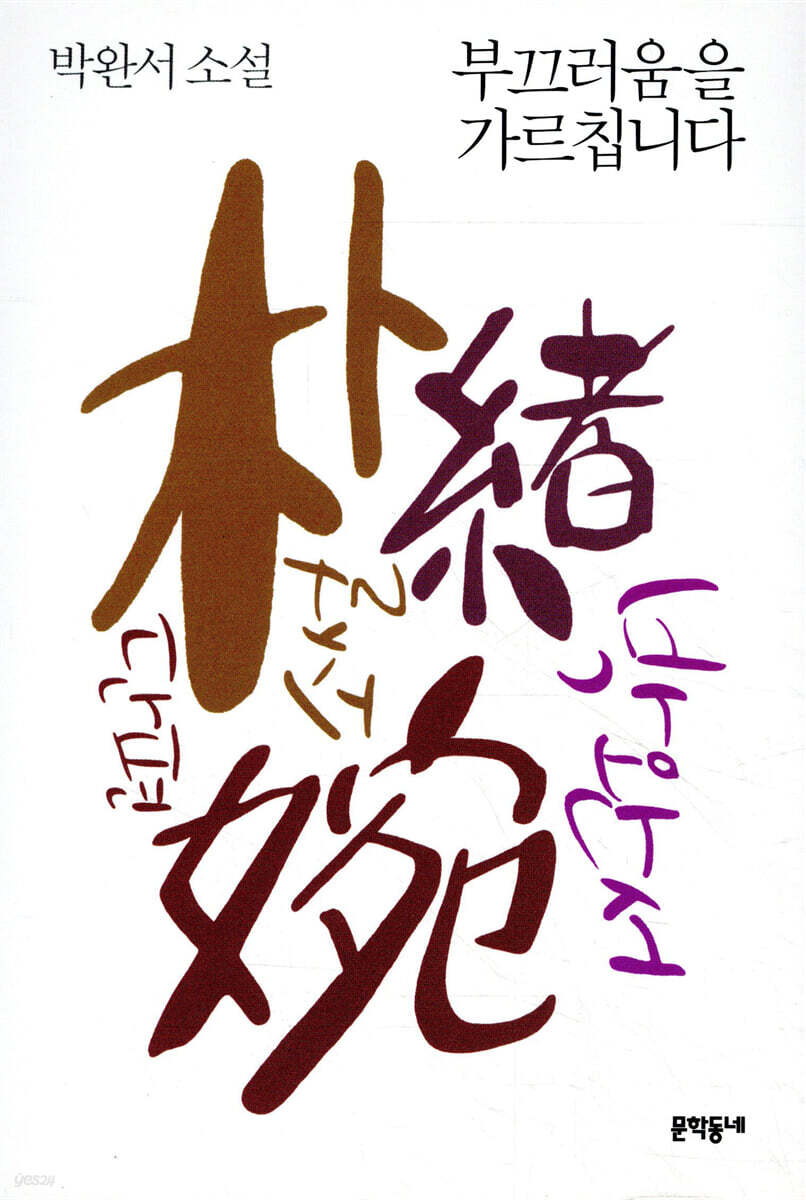 박완서 소설
부끄러움을
가르칩니다
朴
緖
婉
박완서
단편
문학동네
yes24